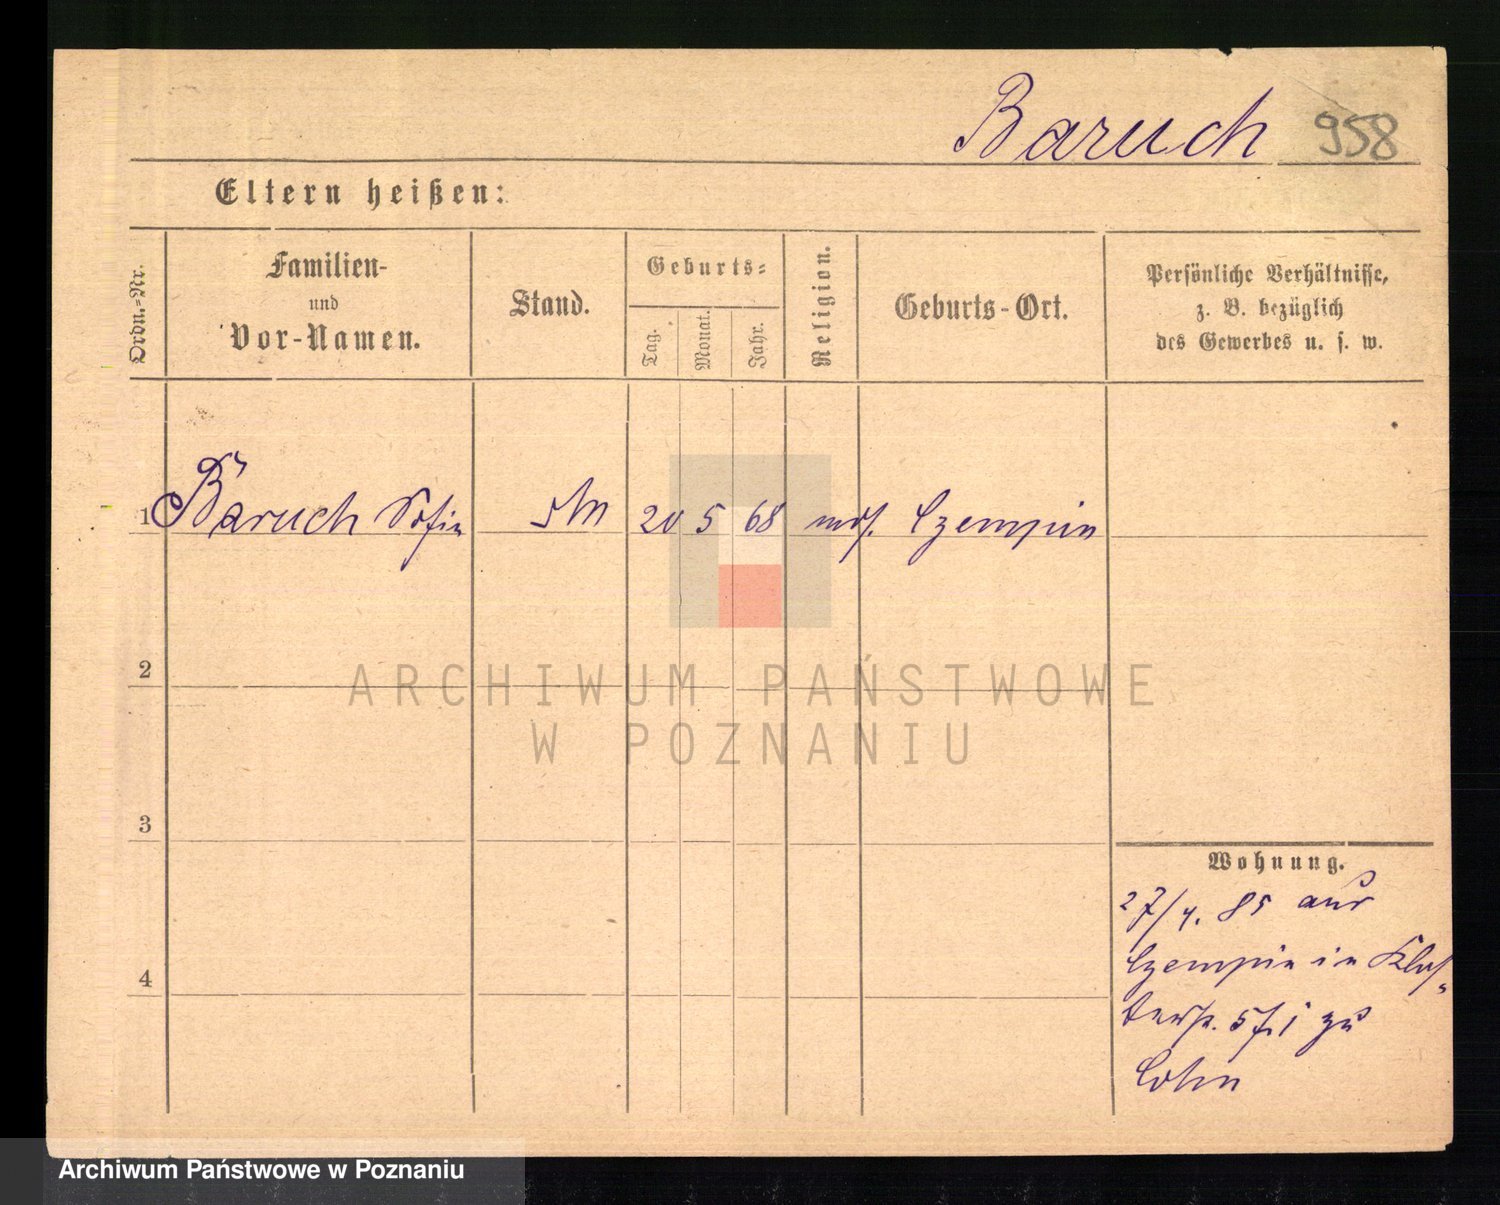 Baruch 958
Eltern heißen:
Ordn.-Nr.
Familien-
und
Vor-Namen.
Stand.
Geburts-
Tag.
Monat.
Jahr.
Religion.
Geburts-Ort.
Persönliche Verhältnisse,
z. B. bezüglich
des Gewerbes u. s. w.
1 Baruch Sofie 20 5 68 mos. Czempin
2
ARCHIWUM PAŃSTWOWE
W POZNANIU
3
4
Wohnung.
27/4. 85 aus
Czempin in Klos-
terstr. 5/I zu
Cohn
Archiwum Państwowe w Poznaniu